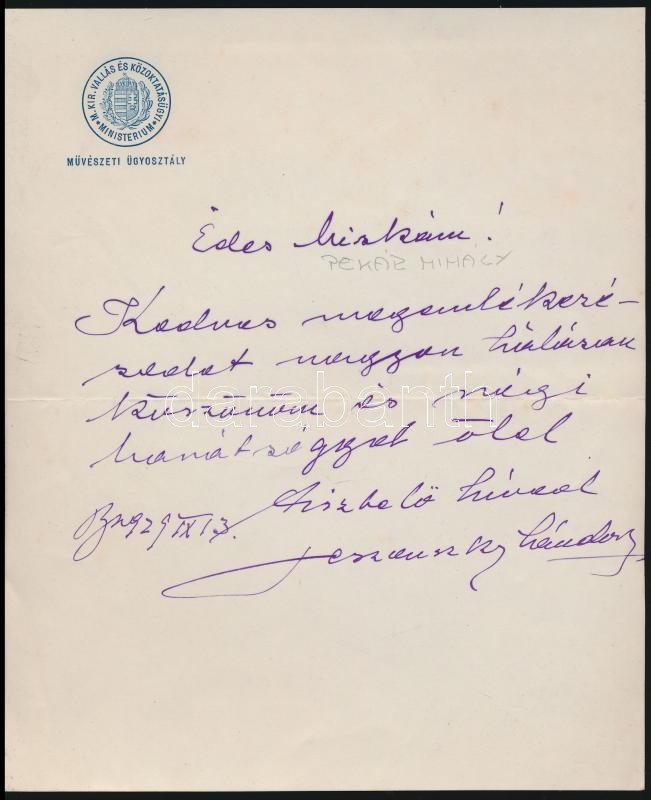 M. KIR. VALLÁS ÉS KÖZOKTATÁSÜGYI MINISTERIUM
MŰVÉSZETI ÜGYOSZTÁLY
Édes Miskám!
PEKÁR MIHÁLY
Kedves megemlékezé-
sedet nagyon hálásan
köszönöm és régi
barátsággal ölel
Bp 929 IX 13. tisztelő híved
Jeszenszky Sándor
darabanth